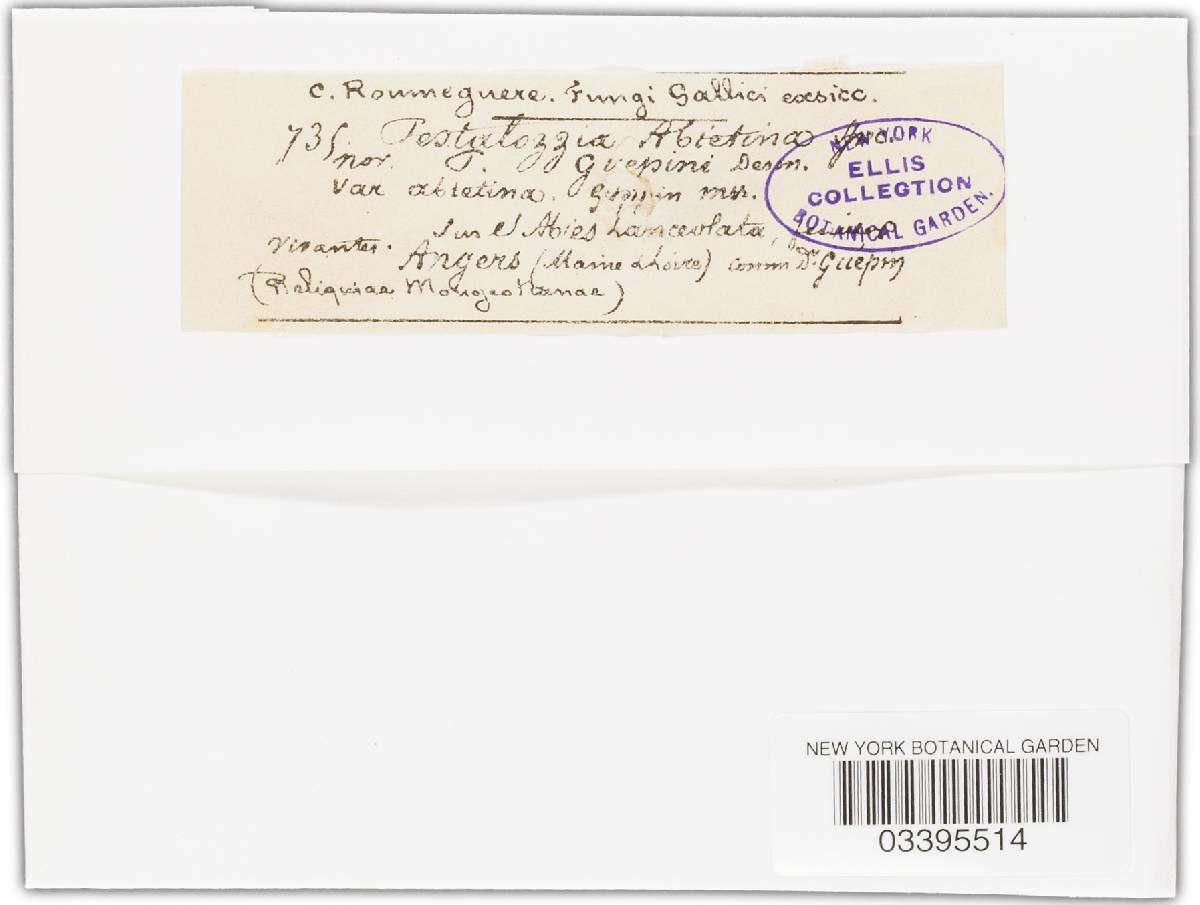 C. Roumeguere. Fungi Gallici exsicc.
735. Pestalozzia Abietina
nov. P. Guepini Desm.
Var abietina. Guepin mss.
Sur l'Abies Lanceolata,
vivantes. Angers (Maine & Loire) comm Dr. Guepin
(Reliquiae Mougeotianae)
NEW YORK
ELLIS
COLLECTION
BOTANICAL GARDEN.
NEW YORK BOTANICAL GARDEN
03395514